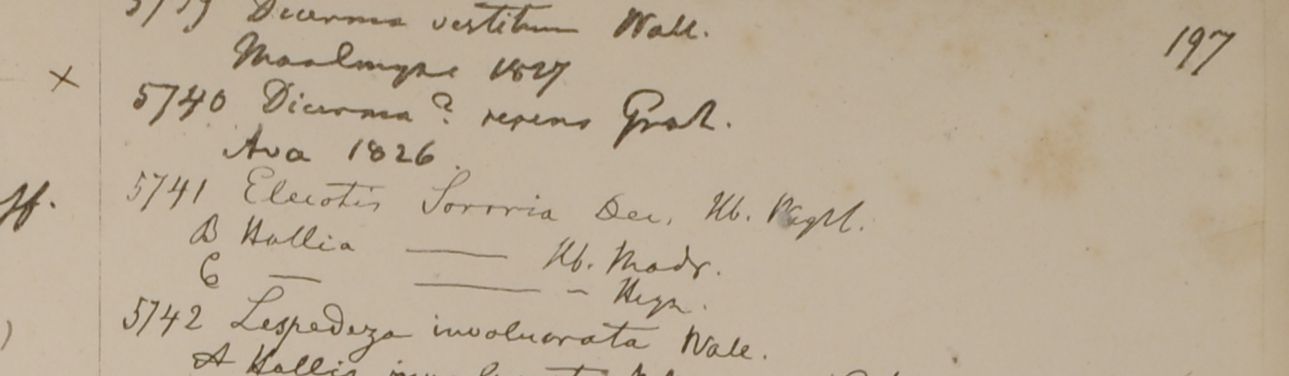 5739 Dicerma vestitum Wall.
197
Moalmyne 1827
×
5740 Dicerma ? repens Grah.
Ava 1826
5741 Eleiotis Sororia Dec. Hb. Wight.
B Hallia —— Hb. Madr.
C — —— - Heyn.
5742 Lespedeza involucrata Wall.
A Hallia